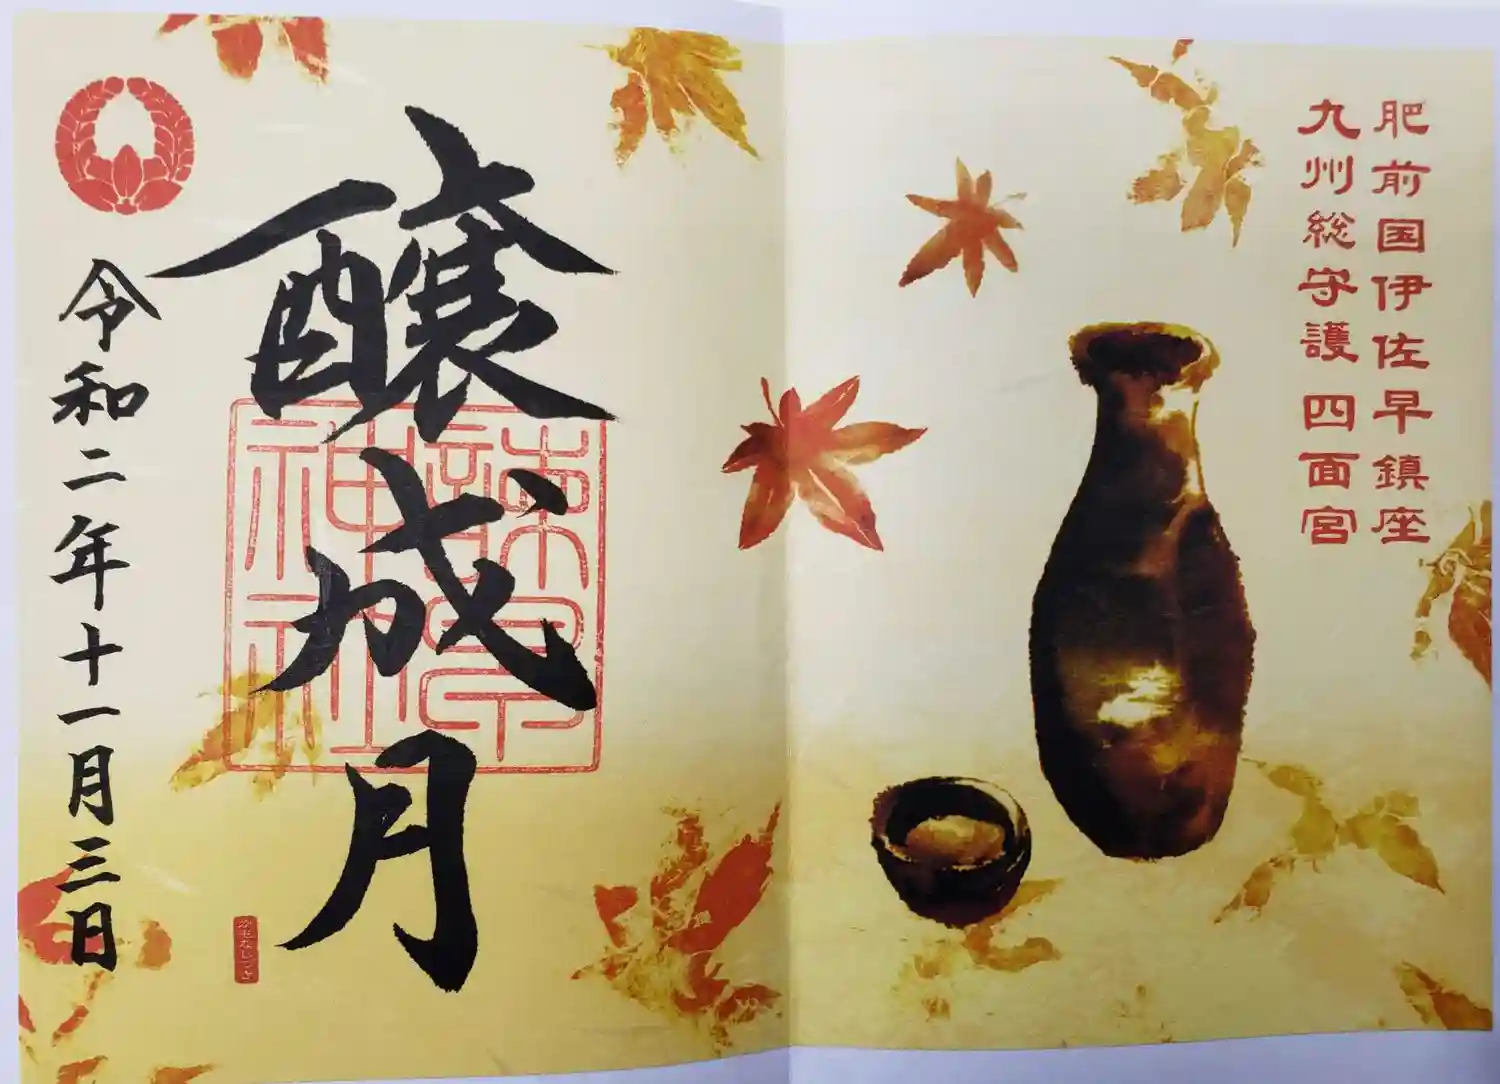 肥前国伊佐早鎮座
九州総守護 四面宮
醸成月
諫早
神社
かもなしづき
令和二年十一月三日